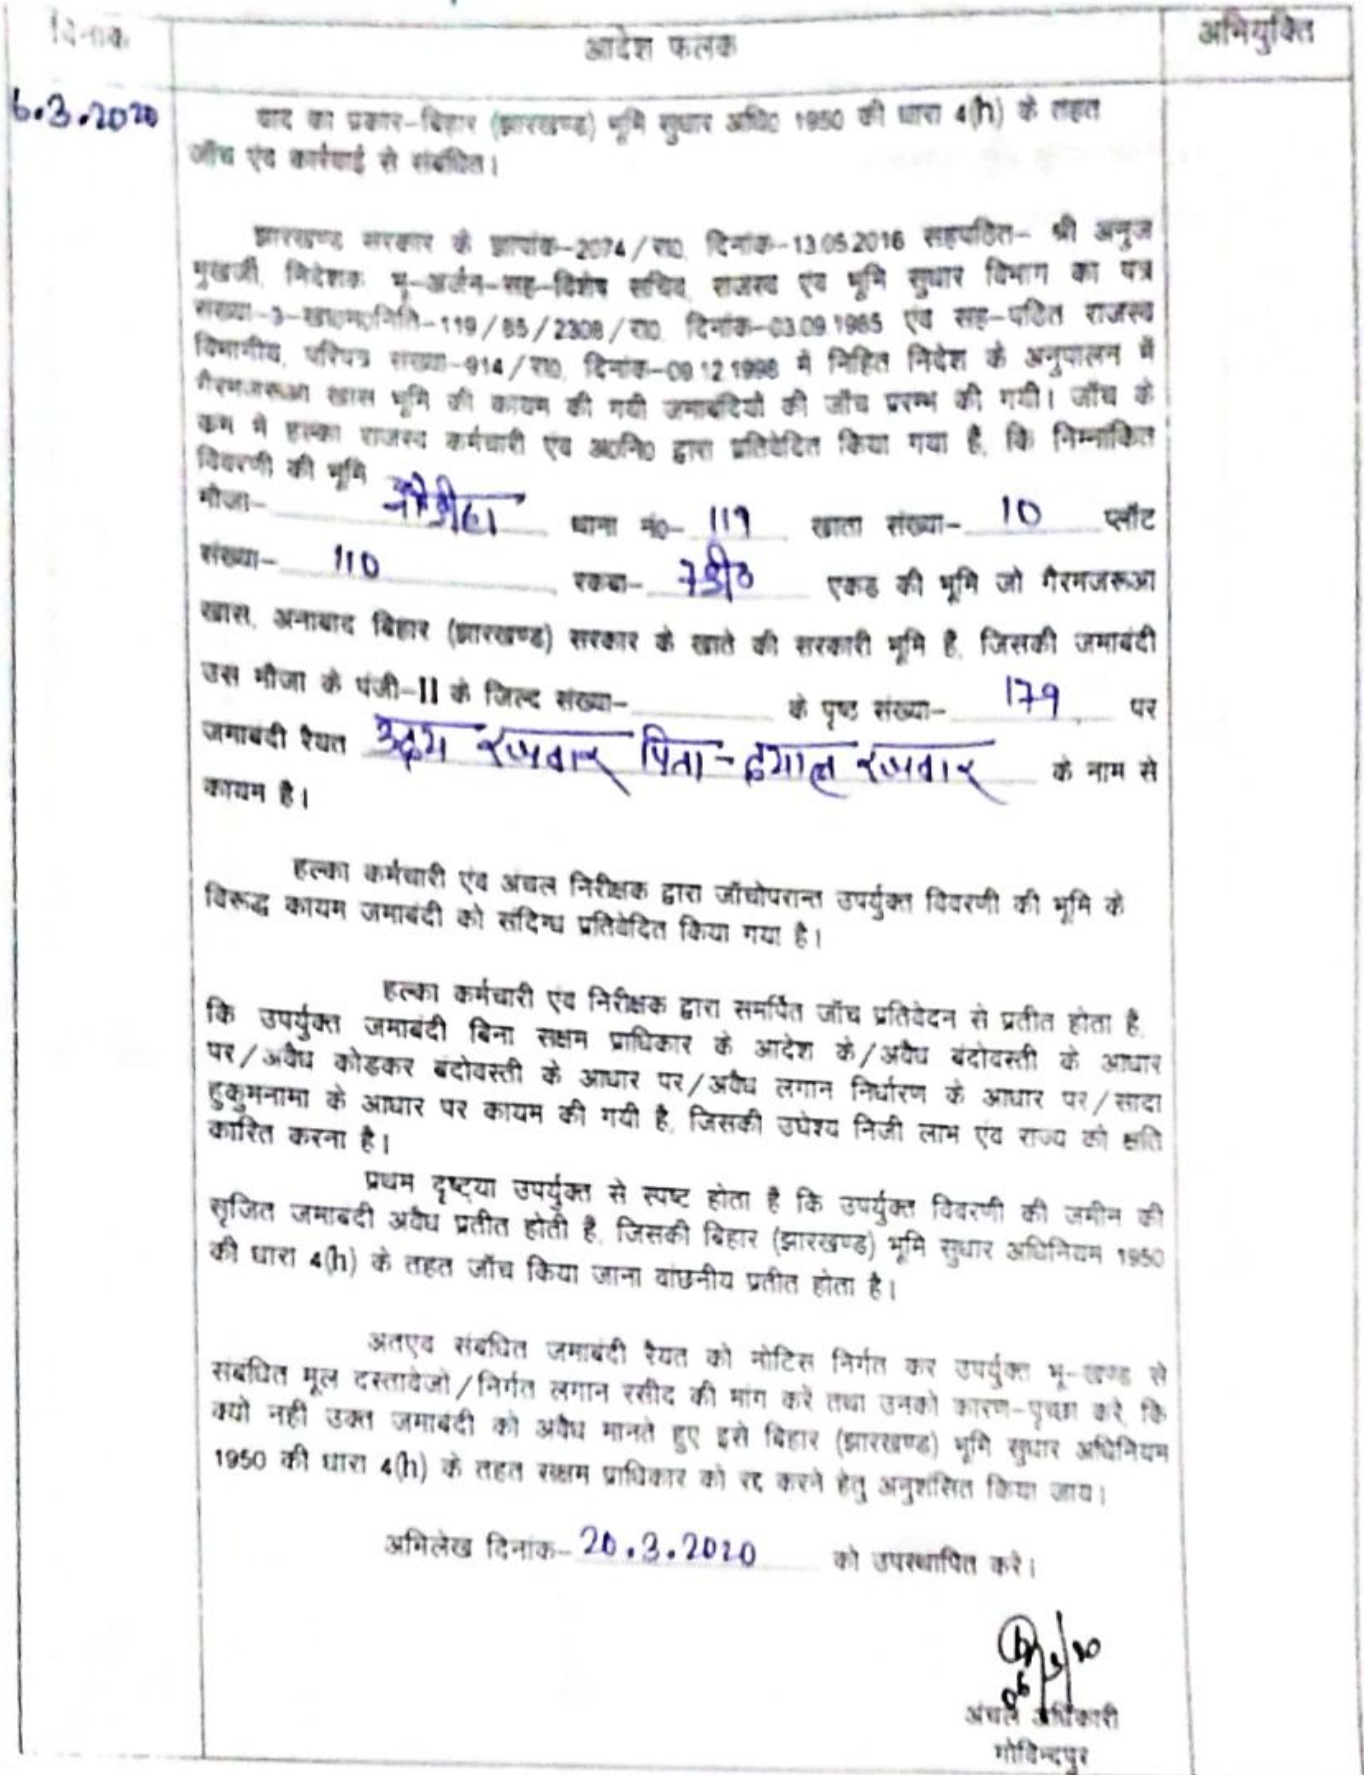 दिनांक
आदेश फलक
अभियुक्ति
6.3.2020
वाद का प्रकार-बिहार (झारखण्ड) भूमि सुधार अधि० 1950 की धारा 4(h) के तहत
जाँच एंव कार्रवाई से संबंधित।
झारखण्ड सरकार के ज्ञापांक-2074/रा०, दिनांक-13.05.2016 सहपठित- श्री अनुज
मुखर्जी, निदेशक भू-अर्जन-सह-विशेष सचिव, राजस्व एंव भूमि सुधार विभाग का पत्र
संख्या-3-खा०म०निति-119/85/2308/रा०, दिनांक-03.09.1985 एंव सह-पठित राजस्व
विभागीय, परिपत्र संख्या-914/रा०, दिनांक-09.12.1998 में निहित निदेश के अनुपालन में
गैरमजरूआ खास भूमि की कायम की गयी जमाबंदियों की जाँच प्ररम्भ की गयी। जाँच के
क्रम में हल्का राजस्व कर्मचारी एंव अ०नि० द्वारा प्रतिवेदित किया गया है, कि निम्नांकित
विवरणी की भूमि
मौजा- थाना नं०- 119 खाता संख्या- 10 प्लॉट
संख्या- 110 रकबा- एकड की भूमि जो गैरमजरूआ
खास, अनाबाद बिहार (झारखण्ड) सरकार के खाते की सरकारी भूमि है, जिसकी जमाबंदी
उस मौजा के पंजी-II के जिल्द संख्या- के पृष्ठ संख्या- 179 पर
जमाबंदी रैयत उदय रजवार पिता- दयाल रजवार के नाम से
कायम है।
हल्का कर्मचारी एंव अंचल निरीक्षक द्वारा जाँचोपरान्त उपर्युक्त विवरणी की भूमि के
विरूद्ध कायम जमाबंदी को संदिग्ध प्रतिवेदित किया गया है।
हल्का कर्मचारी एंव निरीक्षक द्वारा समर्पित जाँच प्रतिवेदन से प्रतीत होता है,
कि उपर्युक्त जमाबंदी बिना सक्षम प्राधिकार के आदेश के/अवैध बंदोवस्ती के आधार
पर/अवैध कोडकर बंदोवस्ती के आधार पर/अवैध लगान निर्धारण के आधार पर/सादा
हुकुमनामा के आधार पर कायम की गयी है, जिसकी उघेश्य निजी लाभ एंव राज्य को क्षति
कारित करना है।
प्रथम दृष्ट्या उपर्युक्त से स्पष्ट होता है कि उपर्युक्त विवरणी की जमीन की
सृजित जमाबंदी अवैध प्रतीत होती है, जिसकी बिहार (झारखण्ड) भूमि सुधार अधिनियम 1950
की धारा 4(h) के तहत जाँच किया जाना वांछनीय प्रतीत होता है।
अतएव संबंधित जमाबंदी रैयत को नोटिस निर्गत कर उपर्युक्त भू-खण्ड से
संबंधित मूल दस्तावेजों/निर्गत लगान रसीद की मांग करे तथा उनको कारण-पृच्छा करे, कि
क्यों नही उक्त जमाबंदी को अवैध मानते हुए इसे बिहार (झारखण्ड) भूमि सुधार अधिनियम
1950 की धारा 4(h) के तहत सक्षम प्राधिकार को रद्द करने हेतु अनुशंसित किया जाय।
अभिलेख दिनांक- 20.3.2020 को उपस्थापित करे।
अंचल अधिकारी
गोविन्दपुर